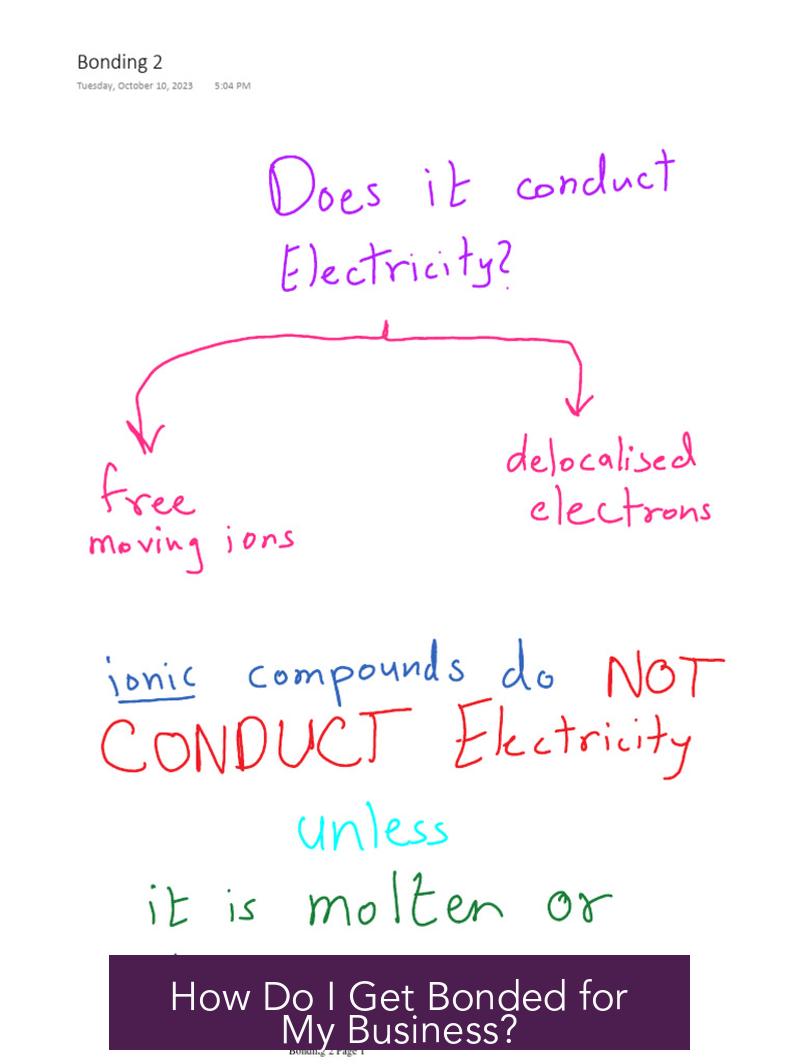 Bonding 2
Tuesday, October 10, 2023 5:04 PM
Does it conduct
Electricity?
free
moving ions
delocalised
electrons
ionic compounds do NOT
CONDUCT Electricity
unless
it is molten or
How Do I Get Bonded for
My Business?
Bonding 2 Page 1